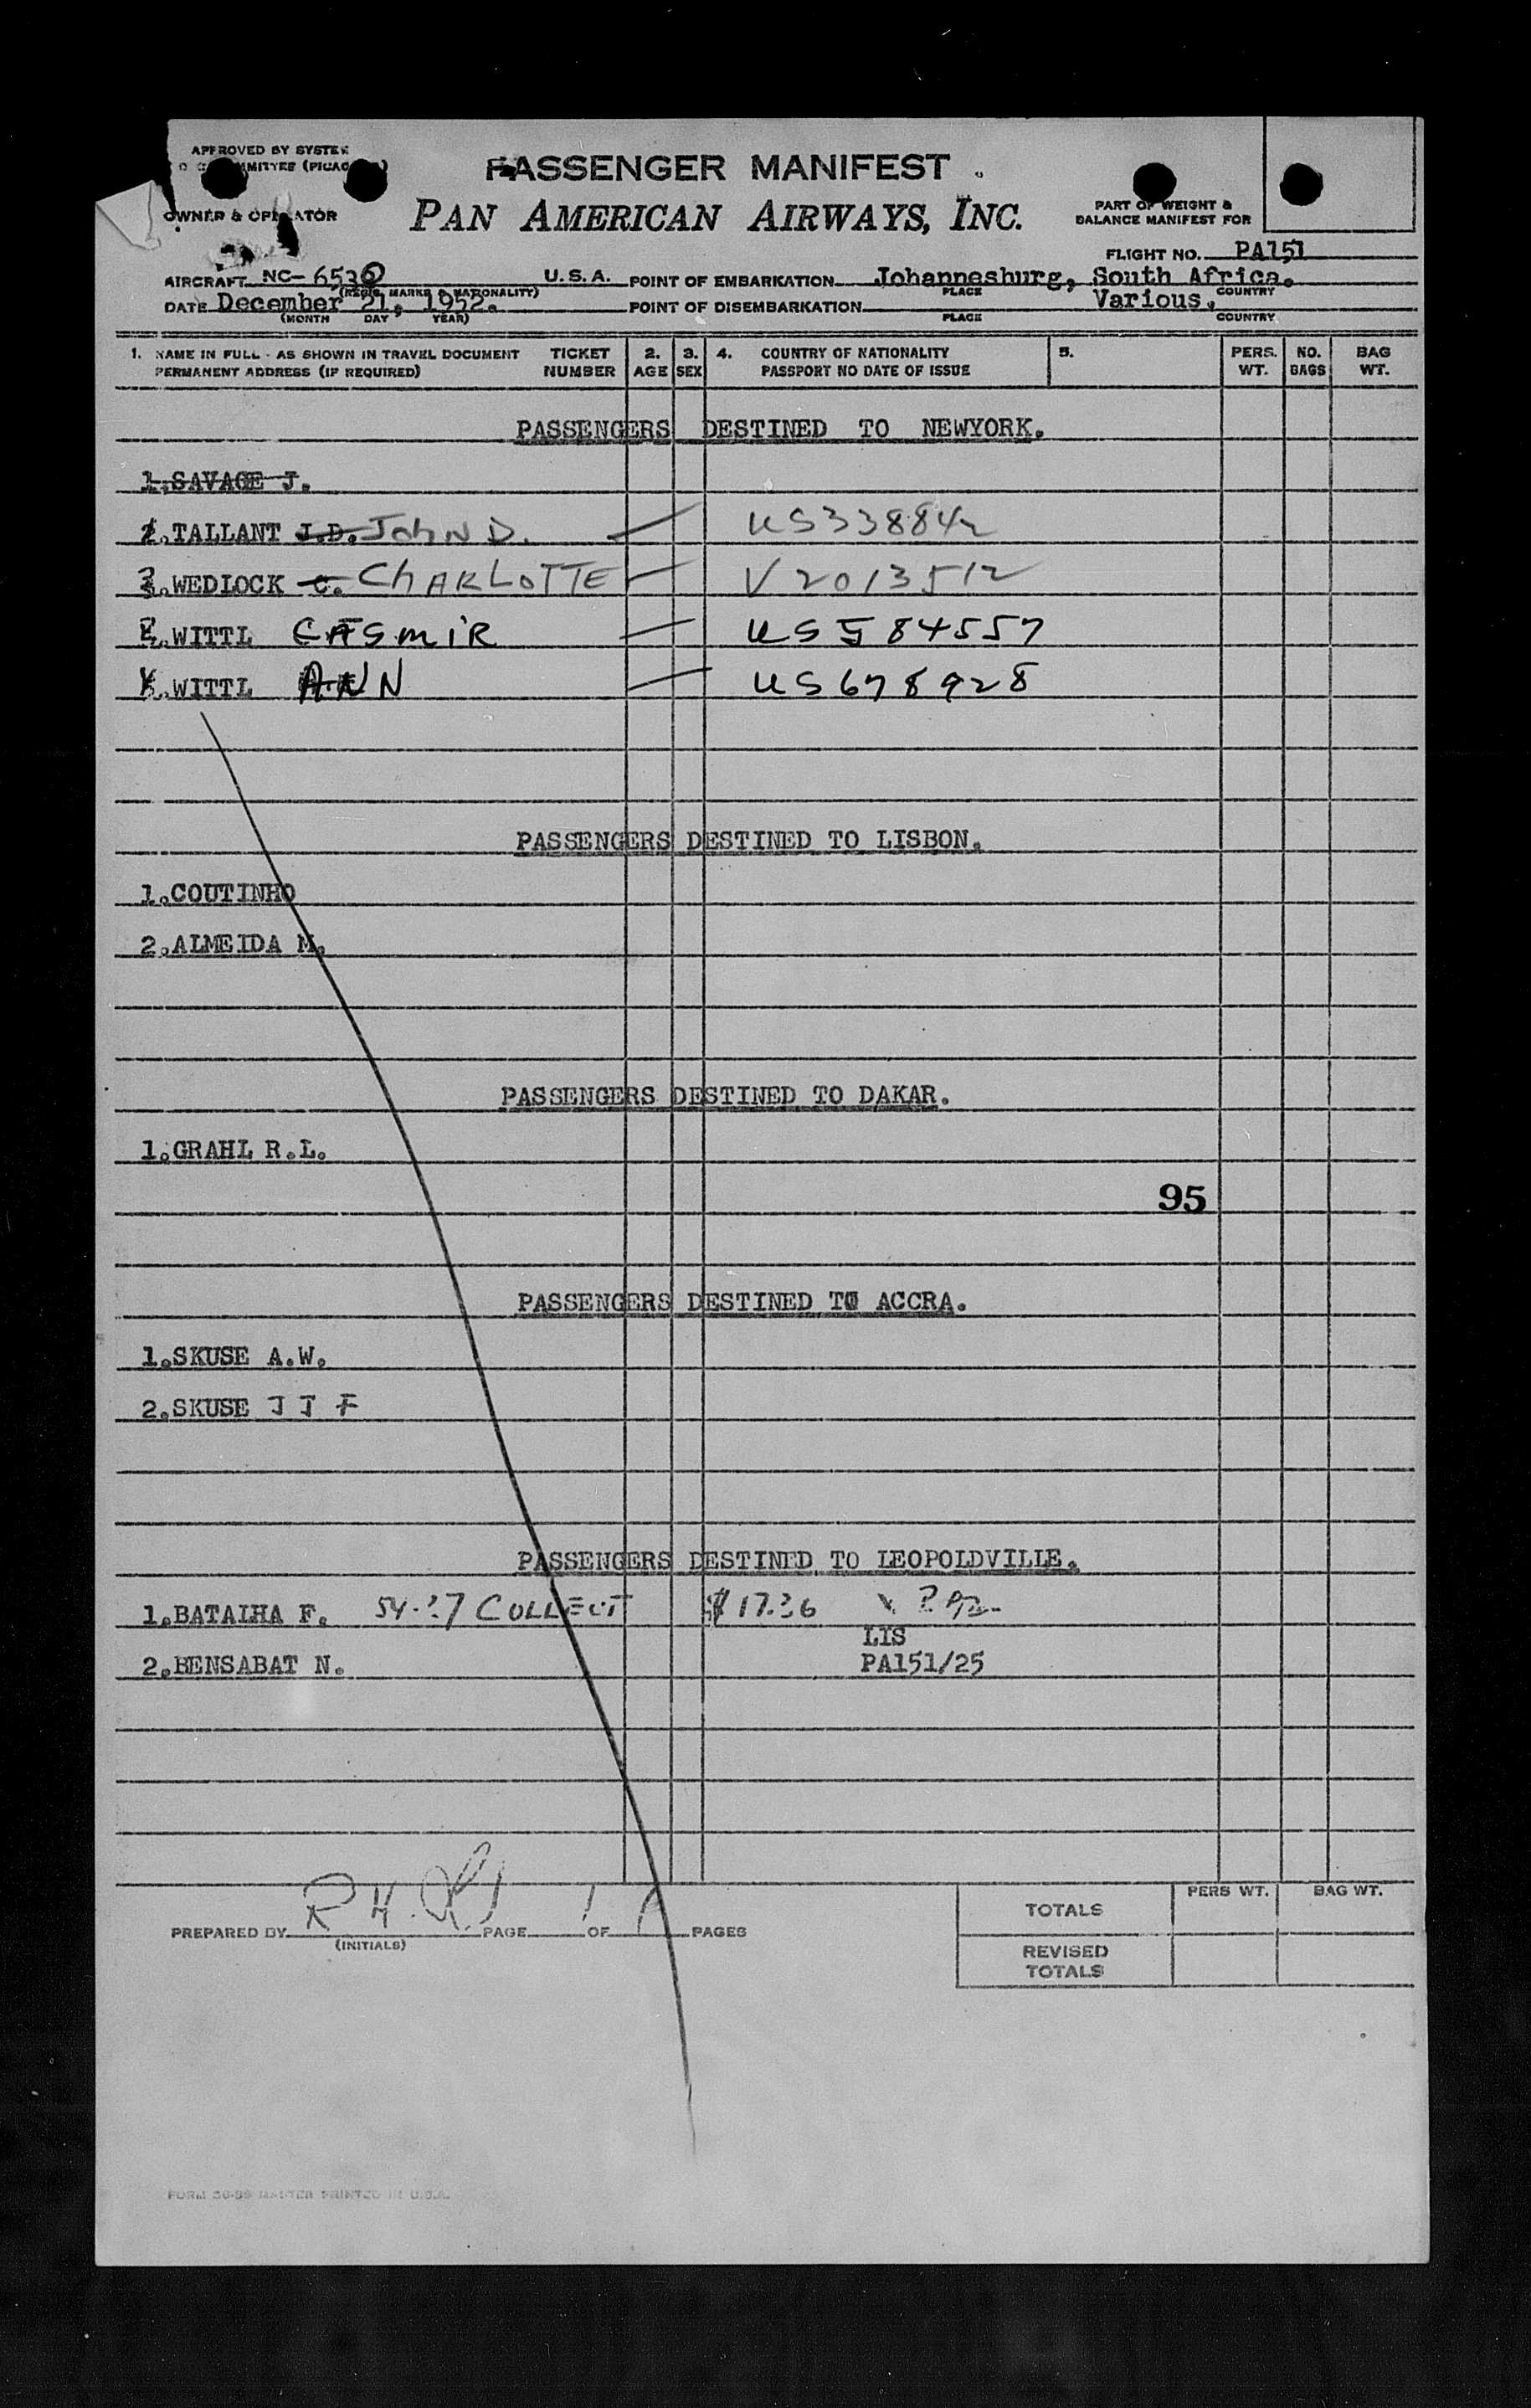 APPROVED BY SYSTEM
PASSENGER MANIFEST
OWNER & OPERATOR
PAN AMERICAN AIRWAYS, INC.
PART OF WEIGHT &
BALANCE MANIFEST FOR
FLIGHT NO. PA151
AIRCRAFT NC-6530 U.S.A. POINT OF EMBARKATION Johannesburg, South Africa.
(REGIS. MARKS & NATIONALITY) PLACE COUNTRY
DATE December 21, 1952. POINT OF DISEMBARKATION Various.
(MONTH DAY YEAR) PLACE COUNTRY
1. NAME IN FULL - AS SHOWN IN TRAVEL DOCUMENT TICKET 2. 3. 4. COUNTRY OF NATIONALITY 5. PERS. NO. BAG
PERMANENT ADDRESS (IF REQUIRED) NUMBER AGE SEX PASSPORT NO DATE OF ISSUE WT. BAGS WT.
PASSENGERS DESTINED TO NEWYORK.
1.SAVAGE J.
2.TALLANT J.D. JOHN D. US338842
3.WEDLOCK C. CHARLOTTE V2013512
WITTL CASMIR US584557
WITTL ANN US678928
PASSENGERS DESTINED TO LISBON.
1.COUTINHO
2.ALMEIDA M.
PASSENGERS DESTINED TO DAKAR.
1.GRAHL R.L.
95
PASSENGERS DESTINED TO ACCRA.
1.SKUSE A.W.
2.SKUSE J J F
PASSENGERS DESTINED TO LEOPOLDVILLE.
1.BATALHA F. COLLECT $17.36
LIS
2.BENSABAT N. PA151/25
PREPARED BY R H PAGE 1 OF 1 PAGES
(INITIALS)
PERS WT. BAG WT.
TOTALS
REVISED
TOTALS